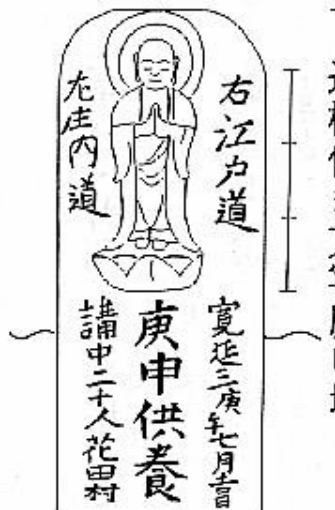 右江戸道
左庄内道
寛延三庚午七月吉日
庚申供養
講中二十人花田村